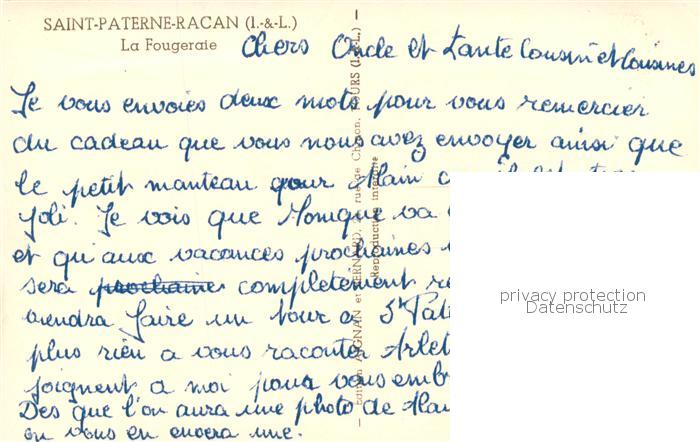 SAINT-PATERNE-RACAN (I.-&-L.)
La Fougeraie
Chers Oncle et Tante Cousin et Cousines
Je vous envoies deux mots pour vous remercier
du cadeau que vous nous avez envoyer ainsi que
le petit manteau pour Alain
joli. Je vois que Monique va
et qu'aux vacances prochaines
sera prochaine completement
viendra faire un tour a St
plus rien a vous raconter
joignent a moi pour vous
Des que l'on aura une photo de
on vous en envera une.
Edition AIGNAN et BERNARD, rue de TOURS (I.-&-L.)
Reproduction interdite
privacy protection
Datenschutz